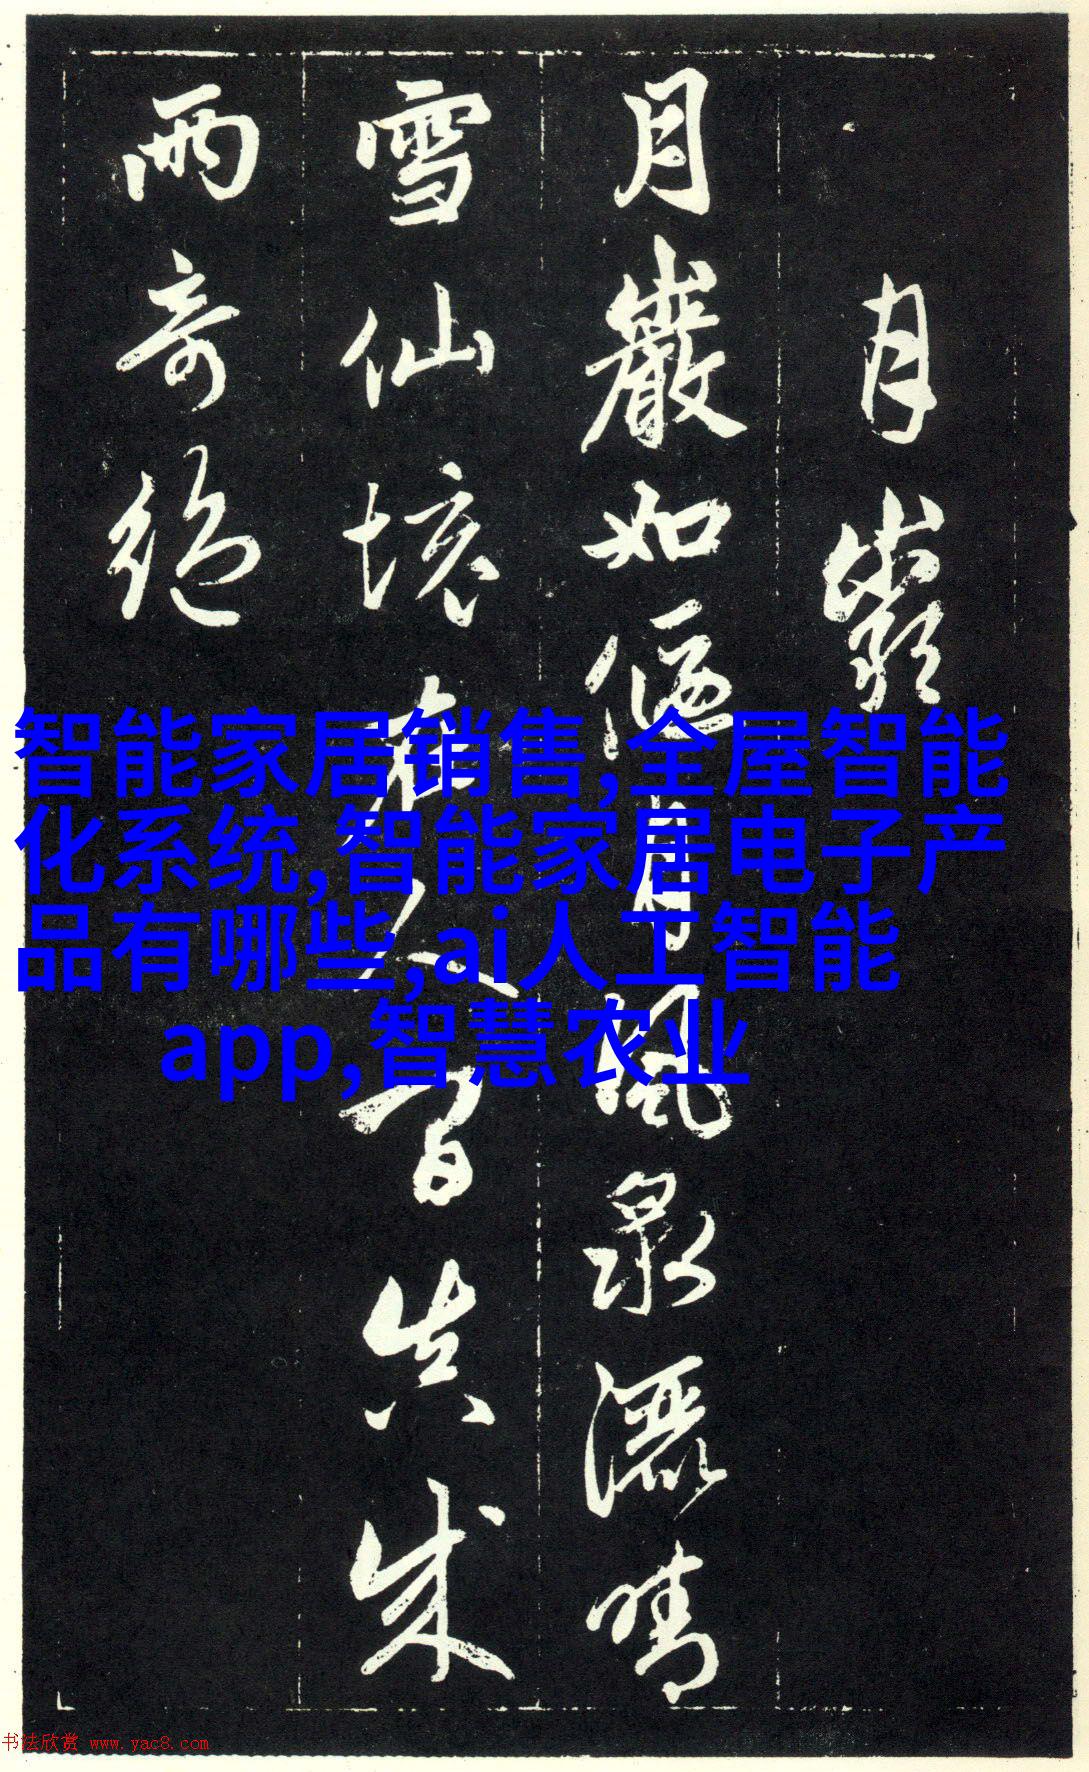 月巖
月巖如偃月風泉灑晴
雪仙境在人間真成
兩奇絕
智能家居销售,全屋智能
化系统,智能家居电子产
品有哪些,ai人工智能
app,智慧农业
书法欣赏 www.yac8.com